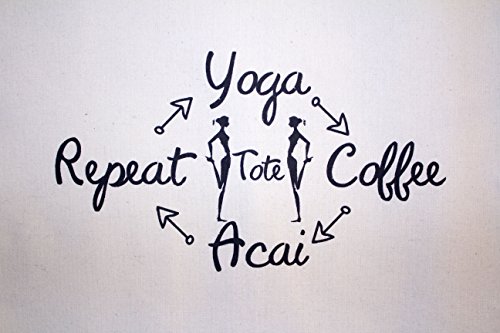 Yoga
Repeat Tote Coffee
Acai